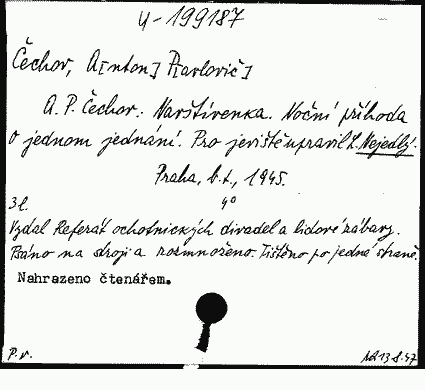 4-199187
Čechov, A[nton] P[avlovič]
A. P. Čechov: Navštívenka. Noční příhoda
o jednom jednání. Pro jeviště upravil L. Nejedlý.
Praha, b.t., 1945.
3 l. 4°
Vydal Referát ochotnických divadel a lidové zábavy.
Psáno na stroji a rozmnoženo. Tištěno po jedné straně.
Nahrazeno čtenářem.
P. v. 13.8.47